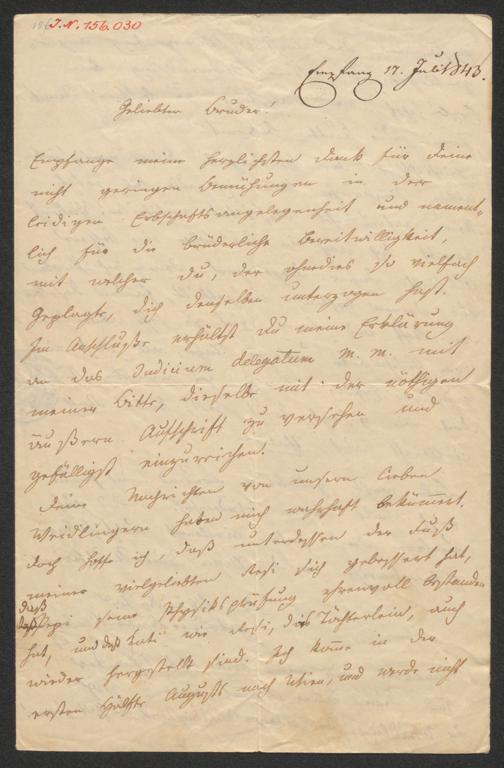 I.N. 156.030
Empfang 17. Juli 1843.
Geliebter Bruder!
Empfange meinen herzlichsten Dank für deine
nicht geringen Bemühungen in der
leidigen Erbschaftsangelegenheit und nament-
lich für die brüderliche Bereitwilligkeit,
mit welcher du, der ohnedies so vielfach
Geplagte, dich denselben unterzogen hast.
Im Anschluße erhältst du meine Erklärung
an das Judicium delegatum m. m. mit
meiner Bitte, dieselbe mit der nöthigen
äußern Aufschrift zu versehen und
gefälligst einzureichen.
Deine Nachrichten von unsern lieben
Weidlingern haben mich wahrhaft bekümmert.
Doch hoffe ich, daß unterdessen der Fuß
meiner vielgeliebten Resi sich gebessert hat,
daß Pepi seine Physiksprüfung ehrenvoll bestanden
hat, und daß Kati wie Resi, das Töchterlein, auch
wieder hergestellt sind. Ich komme in der
ersten Hälfte Augusts nach Wien, und werde nicht